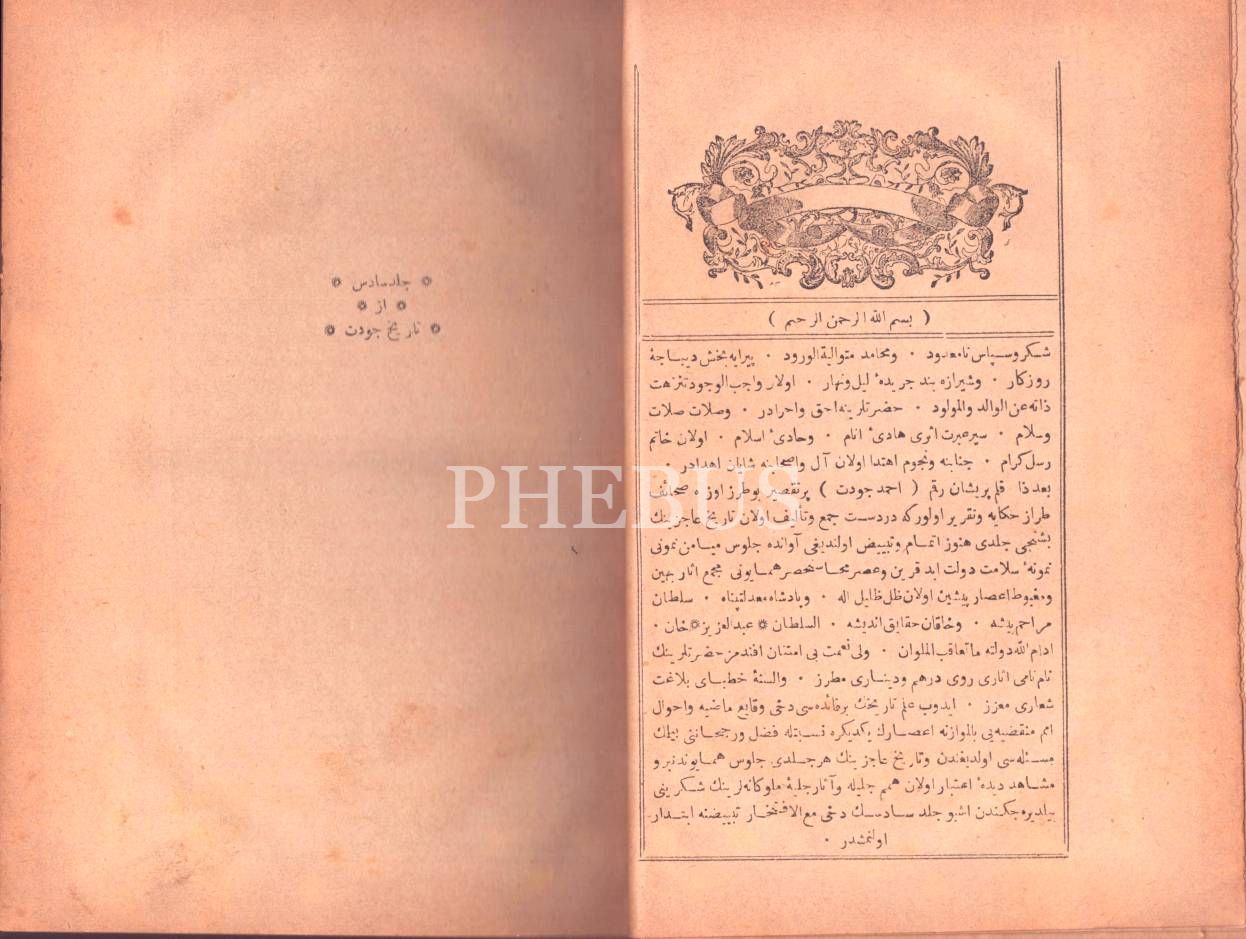 جلد سادس
از
تاریخ جودت
( بسم الله الرحمن الرحیم )
شكر و سپاس نامعدود ٠ و محامد متوالیة الورود ٠ پیرایه بخش دیباجۀ
روزكار ٠ و شیرازه بند جریدهٔ لیل و نهار ٠ اولان واجب الوجود تنزهت
ذاته عن الوالد والمولود ٠ حضرتلرینه احق و احرادر ٠ و صلات صلات
و سلام ٠ سیر عبرت اثری هادیٔ انام ٠ و حادیٔ اسلام ٠ اولان خاتم
رسل كرام ٠ جنابنه و نجوم اهتدا اولان آل و اصحابنه شایان اهدادر
بعد ذا قلم پریشان رقم ( احمد جودت ) پرتقصیر بو طرز اوزره صحائف
طراز حكایه و تقریر اولور كه دردست جمع و تألیف اولان تاریخ عاجزینك
بشنجی جلدی هنوز اتمام و تبییض اولندیغی آوانده جلوس میامن نمونی
نمونهٔ سلامت دولت ابد قرین و عصر محاسنحصر همایونی مجمع اثار بهین
و مغبوط اعصار پیشین اولان ظل ظلیل اله ٠ و پادشاه معدلتپناه ٠ سلطان
مراحم پیشه ٠ و خاقان حقایق اندیشه ٠ السلطان عبدالعزیز خان ٠
ادام الله دولته ماتعاقب الملوان ٠ ولی نعمت بی امتنان افندمز حضرتلرینك
نام نامی اثاری روی درهم و دیناری مطرز ٠ و السنۀ خطبای بلاغت
شعاری معزز ٠ ایدوب علم تاریخك بر فائده سی دخی وقایع ماضیه و احوال
امم منقضیه یی بالموازنه اعصارك یكدیكره نسبتله فضل و رجحاننی بیلمك
مسئله سی اولدیغندن و تاریخ عاجزینك هر جلدی جلوس همایوندنبرو
مشاهد دیدهٔ اعتبار اولان همم جلیله و آثار جلیۀ ملوكانه لرینك شكرینی
بیلدیره جكندن اشبو جلد سادسك دخی مع الافتخار تبییضنه ابتدار
اولنمشدر ٠
PHEBUS